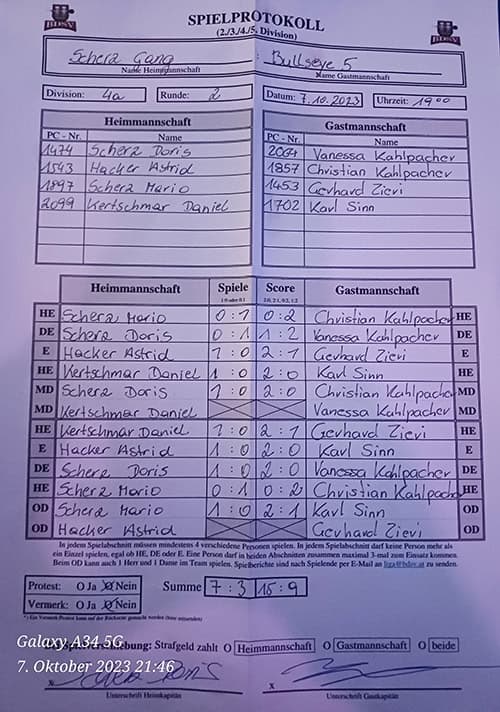 SPIELPROTOKOLL
(2./3./4./5. Division)
Scherz Gang : Bullseye 5
Name Heimmannschaft Name Gastmannschaft
Division: 4a Runde: 2 Datum: 7.10.2023 Uhrzeit: 19 00
Heimmannschaft Gastmannschaft
PC - Nr. Name PC - Nr. Name
1474 Scherz Doris 2064 Vanessa Kahlpacher
1543 Hacker Astrid 1857 Christian Kahlpacher
1897 Scherz Mario 1453 Gerhard Zievi
2099 Kertschmar Daniel 1702 Karl Sinn
Heimmannschaft Spiele Score Gastmannschaft
1:0 oder 0:1 2:0, 2:1, 0:2, 1:2
HE Scherz Mario 0:1 0:2 Christian Kahlpacher HE
DE Scherz Doris 0:1 1:2 Vanessa Kahlpacher DE
E Hacker Astrid 1:0 2:1 Gerhard Zievi E
HE Kertschmar Daniel 1:0 2:0 Karl Sinn HE
MD Scherz Doris 1:0 2:0 Christian Kahlpacher MD
MD Kertschmar Daniel Vanessa Kahlpacher MD
HE Kertschmar Daniel 1:0 2:1 Gerhard Zievi HE
E Hacker Astrid 1:0 2:0 Karl Sinn E
DE Scherz Doris 1:0 2:0 Vanessa Kahlpacher DE
HE Scherz Mario 0:1 0:2 Christian Kahlpacher HE
OD Scherz Mario 1:0 2:1 Karl Sinn OD
OD Hacker Astrid Gerhard Zievi OD
In jedem Spielabschnitt müssen mindestens 4 verschiedene Personen spielen. In jedem Spielabschnitt darf keine Person mehr als
ein Einzel spielen, egal ob HE, DE oder E. Eine Person darf in beiden Abschnitten zusammen maximal 3-mal zum Einsatz kommen.
Beim OD kann auch 1 Herr und 1 Dame im Team spielen. Spielberichte sind nach Spielende per E-Mail an liga@bdsv.at zu senden.
Protest: O Ja O Nein Summe 7 : 3 15 : 9
Vermerk: O Ja O Nein
Strafgeld zahlt O Heimmannschaft O Gastmannschaft O beide
Galaxy A34 5G
7. Oktober 2023 21:46
x x
Unterschrift Heimkapitän Unterschrift Gastkapitän